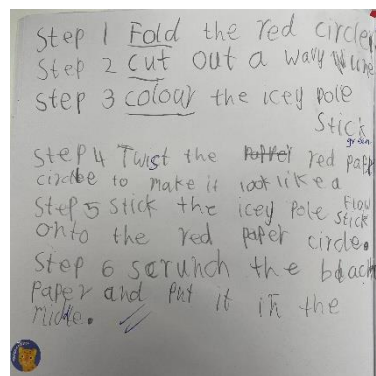 Step 1 Fold the red circle
Step 2 cut out a wavy line
Step 3 colour the icey pole
Stick
green
Step 4 Twist the red pape
circle to make it look like a
Step 5 Stick the icey pole Flow
stick
onto the red paper circle.
Step 6 scrunch the black
paper and put it in the
middle.